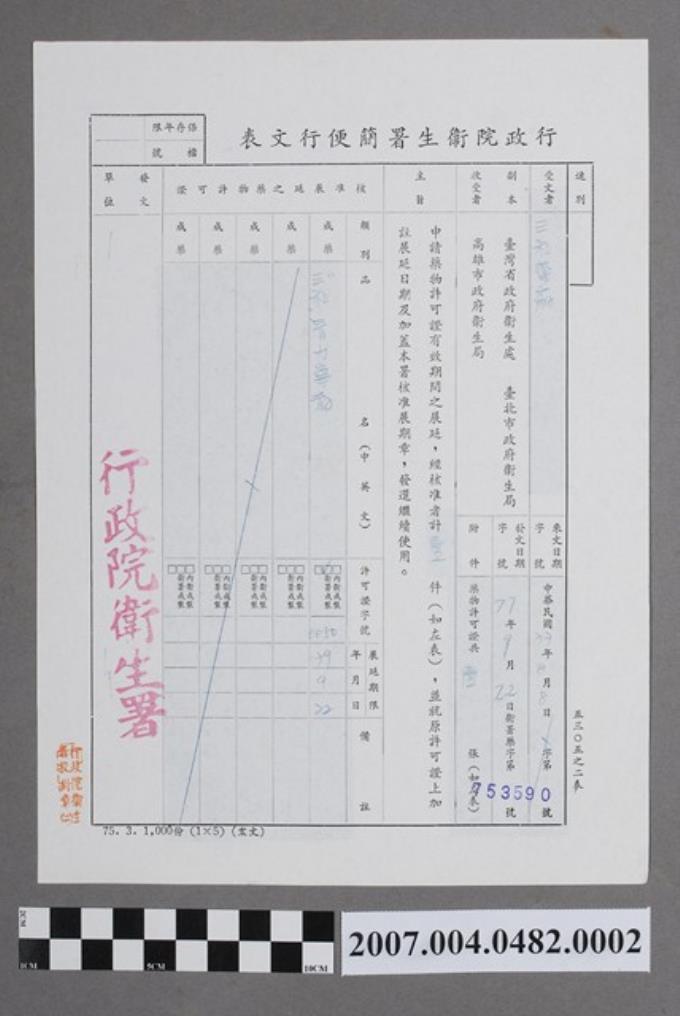 行政院衛生署簡便行文表
保存年限
檔號
速別
受文者
副本收受者
臺灣省政府衛生處 臺北市政府衛生局
高雄市政府衛生局
來文日期
字號
中華民國 年 月 8日 字第 號
發文日期
字號
77年9月22日衛署藥字第753590號
附件
藥物許可證共 壹 張(如左表)
主旨
申請藥物許可證有效期間之展延,經核准者計 壹 件(如左表),並就原許可證上加
註展延日期及加蓋本署核准展期章,發還繼續使用。
核准展延之藥物許可證
類別
成藥
成藥
成藥
成藥
成藥
品名(中英文)
許可證字號
內衛成製
衛署成製
內衛成製
衛署成製
內衛成製
衛署成製
內衛成製
衛署成製
內衛成製
衛署成製
展延期限
年
月
日
9
22
備註
發文單位
行政院衛生署
五三○五之二表
75. 3. 1,000份 (1×5) (宏文)
2CM
1CM
5CM
10CM
2007.004.0482.0002